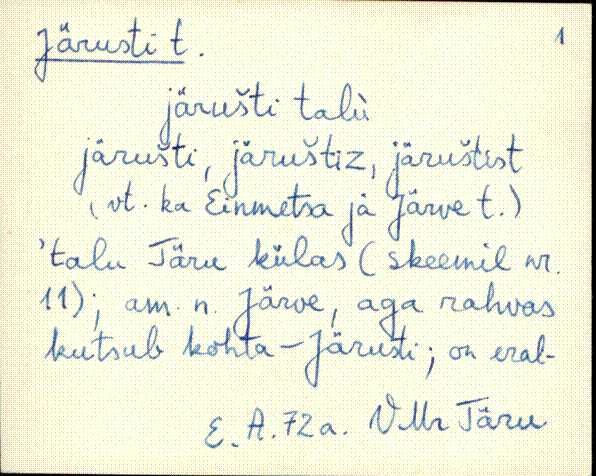 Järusti t. 1
järušti talù
järušti, järuštiz, järuštist
(vt. ka Einmetsa ja Järve t.)
'talu Järu külas (skeemil nr.
11); am. n. Järve, aga rahvas
kutsub kohta – Järusti; on eral-
E. A. 72a. VMr Järu